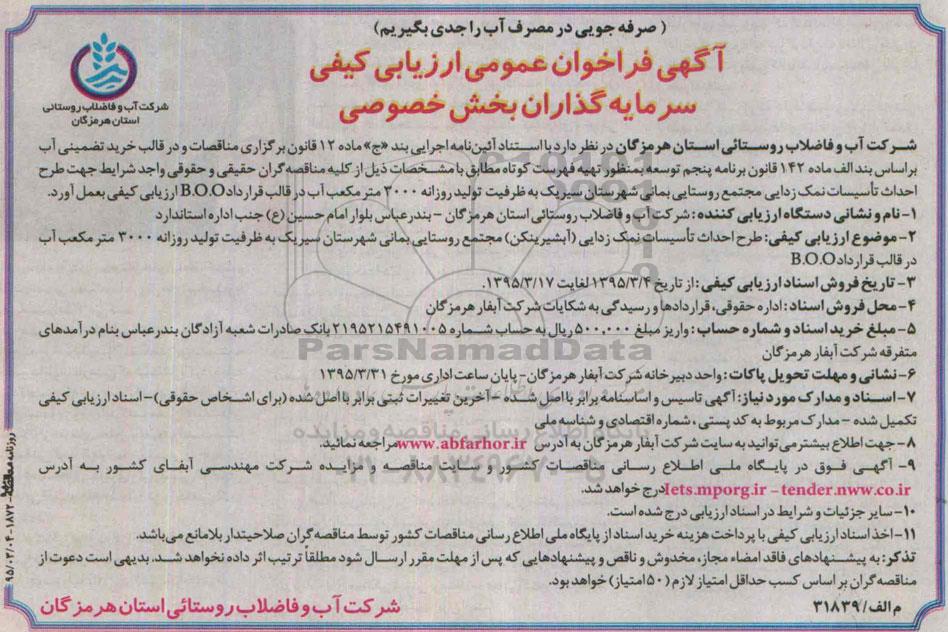 ( صرفه جویی در مصرف آب را جدی بگیریم)
آگهی فراخوان عمومی ارزیابی کیفی
سرمایه گذاران بخش خصوصی
شرکت آب و فاضلاب روستائی
استان هرمزگان
شرکت آب و فاضلاب روستائی استان هرمزگان در نظر دارد با استناد آئین نامه اجرایی بند «ج» ماده ۱۲ قانون برگزاری مناقصات و در قالب خرید تضمینی آب
براساس بند الف ماده ۱۴۲ قانون برنامه پنجم توسعه بمنظور تهیه فهرست کوتاه مطابق با مشخصات ذیل از کلیه مناقصه گران حقیقی و حقوقی واجد شرایط جهت طرح
احداث تأسیسات نمک زدایی مجتمع روستایی بمانی شهرستان سیریک به ظرفیت تولید روزانه ۳۰۰۰ متر مکعب آب در قالب قرارداد B.O.O ارزیابی کیفی بعمل آورد.
۱-نام و نشانی دستگاه ارزیابی کننده: شرکت آب و فاضلاب روستائی استان هرمزگان - بندرعباس بلوار امام حسین (ع) جنب اداره استاندارد
۲-موضوع ارزیابی کیفی: طرح احداث تأسیسات نمک زدایی (آبشیرینکن) مجتمع روستایی بمانی شهرستان سیریک به ظرفیت تولید روزانه ۳۰۰۰ متر مکعب آب
در قالب قرارداد B.O.O
۳- تاریخ فروش اسناد ارزیابی کیفی: از تاریخ ۱۳۹۵/۳/۴ لغایت ۱۳۹۵/۳/۱۷.
۴- محل فروش اسناد: اداره حقوقی، قراردادها و رسیدگی به شکایات شرکت آبفار هرمزگان
۵- مبلغ خرید اسناد و شماره حساب: واریز مبلغ ۵۰۰,۰۰۰ ریال به حساب شماره ۲۱۹۵۲۱۵۴۹۱۰۰۵ بانک صادرات شعبه آزادگان بندرعباس بنام درآمدهای
متفرقه شرکت آبفار هرمزگان
ParsNamadData
۶- نشانی و مهلت تحویل پاکات: واحد دبیرخانه شرکت آبفار هرمزگان- پایان ساعت اداری مورخ ۱۳۹۵/۳/۳۱
۷- اسناد و مدارک مورد نیاز: آگهی تاسیس و اساسنامه برابر با اصل شده - آخرین تغییرات ثبتی برابر با اصل شده (برای اشخاص حقوقی)- اسناد ارزیابی کیفی
تکمیل شده - مدارک مربوط به کد پستی، شماره اقتصادی و شناسه ملی
۸- جهت اطلاع بیشتر می توانید به سایت شرکت آبفار هرمزگان به آدرس www.abfarhor.ir مراجعه نمائید.
۹- آگهی فوق در پایگاه ملی اطلاع رسانی مناقصات کشور و سایت مناقصه و مزایده شرکت مهندسی آبفای کشور به آدرس
Iets.mporg.ir - tender.nww.co.ir درج خواهد شد.
۱۰- سایر جزئیات و شرایط در اسناد ارزیابی درج شده است.
۱۱- اخذ اسناد ارزیابی کیفی با پرداخت هزینه خرید اسناد از پایگاه ملی اطلاع رسانی مناقصات کشور توسط مناقصه گران صلاحیتدار بلامانع می باشد.
تذکر: به پیشنهادهای فاقد امضاء مجاز، مخدوش و ناقص و پیشنهادهایی که پس از مهلت مقرر ارسال شود مطلقاً ترتیب اثر داده نخواهد شد. بدیهی است دعوت از
مناقصه گران بر اساس کسب حداقل امتیاز لازم (۵۰ امتیاز) خواهد بود.
م الف/ ۳۱۸۳۹
شرکت آب و فاضلاب روستائی استان هرمزگان